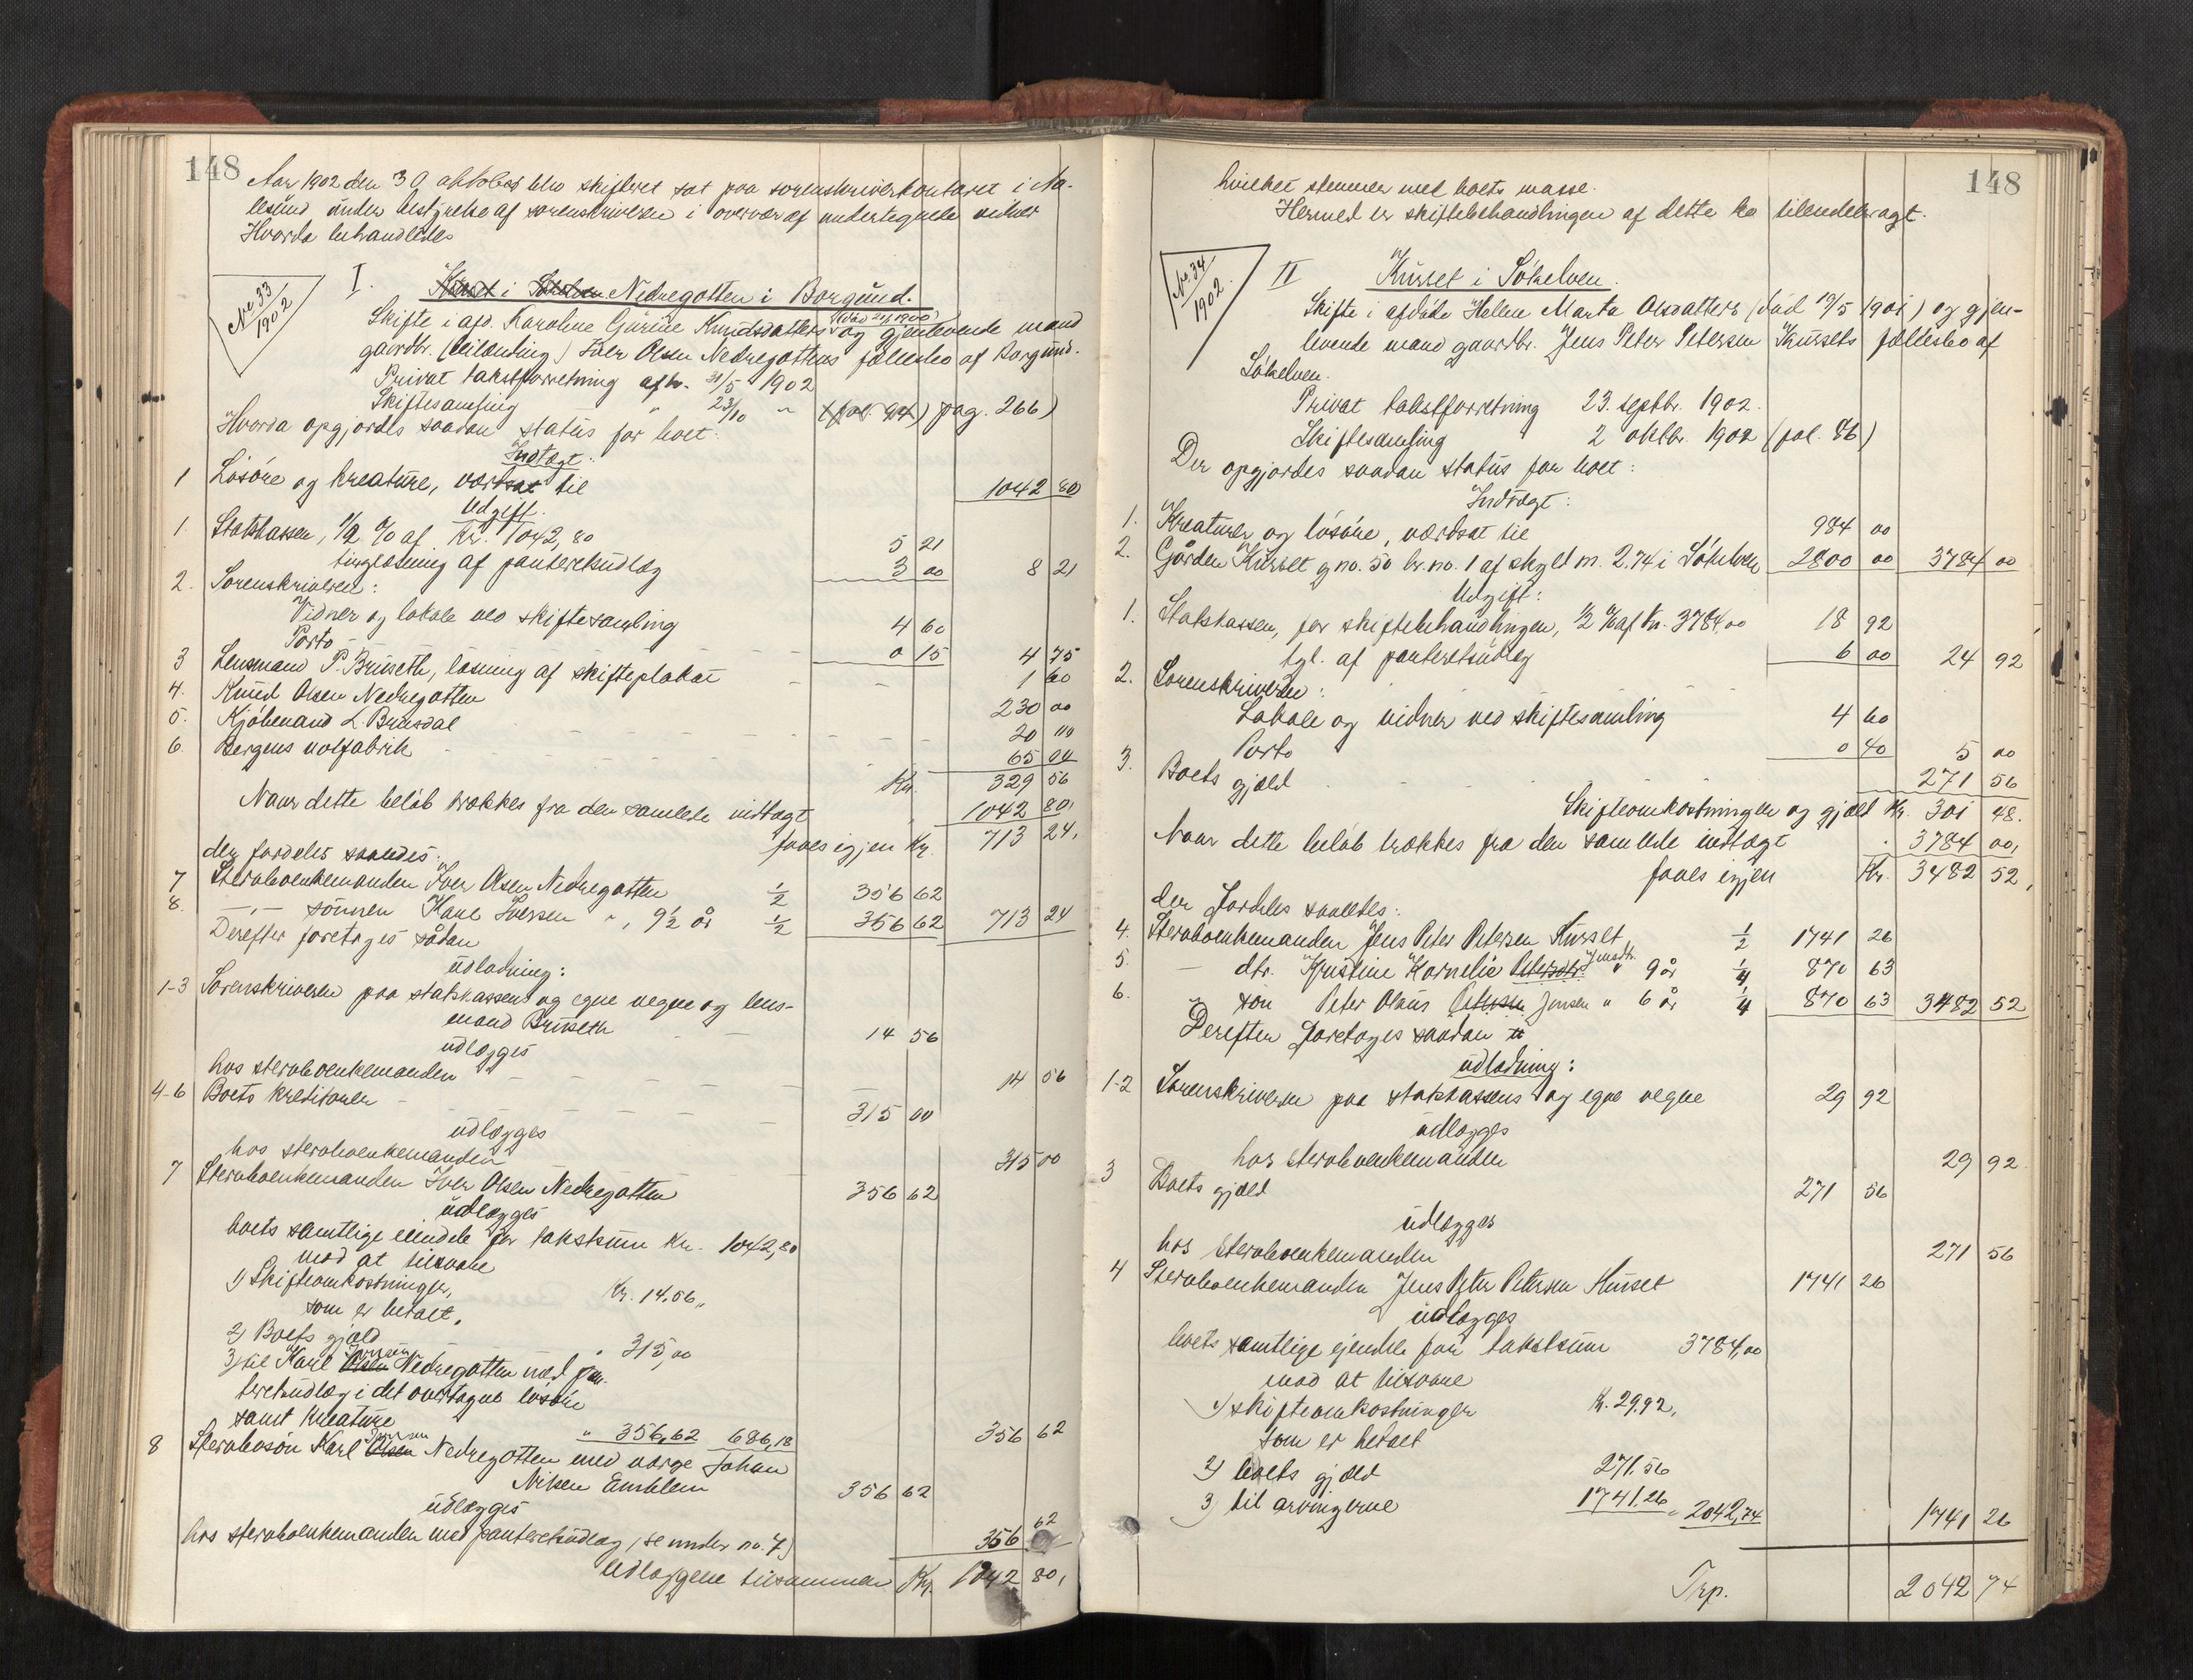 148
Aar 1902 den 30 oktober blev skifteret sat paa sorenskriverkontoret i Aa-
lesund under bestyrelse af sorenskriveren i overvær af undertegnede vidner
Hvorda behandledes
No. 33
1902
I.
Kurset i Søkelven Nedregotten i Borgund.
Skifte i afd. Karoline Gurine Knudsdatters og gjenlevende mand
gaardbr. (leilænding) Iver Olsen Nedregottens fællesbo af Borgund.
Privat takstforretning afh. 31/5 1902
Skiftesamling " 23/10 " (fol. 94) pag. 266)
Hvorda opgjordes saadan status for boet:
Indtægt:
1 Løsøre og kreature, værdsat til 1042 80
Udgift.
1. Statskassen, 1/2 % af Kr. 1042,80 5 21
tinglæsning af panteretsudlæg 3 00 8 21
2. Sorenskriveren:
Vidner og lokale ved skiftesamling 4 60
Porto 0 15 4 75
3 Lensmand P. Brüseth, læsning af skifteplakat 1 60
4. Knud Olsen Nedregotten 230 00
5. Kjøbmand L. Brunsdal 20 00
6. Bergens uldfabrik 65 00
Kr. 329 56
Naar dette beløb trækkes fra den samlede indtægt 1042 80,
faaes igjen Kr. 713 24,
der fordeles saaledes:
7 Stervboenkemanden Iver Olsen Nedregotten 1/2 356 62
8. —"— sønnen Karl Iversen " , 9 1/2 år 1/2 356 62 713 24
Derefter foretages sådan
udlodning:
1-3 Sorenskriveren paa statskassens og egne vegne og lens-
mand Brüseth 14 56
udlægges
hos stervboenkemanden 14 56
4-6 Boets kreditorer 315 00
udlægges
hos stervboenkemanden 315 00
7 Stervboenkemanden Iver Olsen Nedregotten 356 62
udlægges
boets samtlige eiendele for takstsum Kr. 1042,80
mod at tilsvare
1) Skifteomkostninger, Kr. 14.56,
som er betalt,
2) Boets gjæld " 315,00
3) til Karl Olsen Iversen Nedregotten med pan-
teretsudlæg i det overtagne løsøre
samt kreature " 356,62 686,18 356 62
8 Stervbosøn Karl Olsen Iversen Nedregotten med værge Johan
Nilsen Emblem 356 62
udlægges
hos stervboenkemanden med panteretsudlæg (se under no. 7) 356 62
Udlæggene tilsammen Kr. 1042 80,
148
hvilket stemmer med boets masse.
Hermed er skiftebehandlingen af dette bo tilendebragt.
No. 34
1902.
II Kurset i Søkelven.
Skifte i afdøde Helene Marta Olsdatters (død 19/5 1901) og gjen-
levende mand gaardbr. Jens Peter Petersen Kursets fællesbo af
Søkelven.
Privat takstforretning 23. septbr. 1902.
Skiftesamling 2 oktbr. 1902 (fol. 86)
Der opgjordes saadan status for boet:
Indtægt:
1. Kreaturer og løsøre, værdsat til 984 00
2. Gården Kurset gno. 50 br.no. 1 af skyld m. 2.74 i Søkelven 2800 00 3784 00
Udgift:
1. Statskassen, for skiftebehandlingen, 1/2 % af Kr. 3784,00 18 92
tgl. af panteretsudlæg 6 00 24 92
2. Sorenskriveren:
Lokale og vidner ved skiftesamling 4 60
Porto 0 40 5 00
3. Boets gjæld 271 56
Skifteomkostninger og gjæld Kr. 301 48.
Naar dette beløb trækkes fra den samlede indtægt 3784 00,
faaes igjen Kr. 3482 52,
der fordeles saaledes:
4. Stervboenkemanden Jens Peter Petersen Kurset 1/2 1741 26
5. — dtr. Kristine Kornelie Petersdtr. Jensdtr. " 9 år 1/4 870 63
6. " søn Peter Olaus Petersen Jensen " 6 år 1/4 870 63 3482 52
Derefter foretages saadan
udlodning:
1-2 Sorenskriveren paa statskassens og egne vegne 29 92
udlægges
hos stervboenkemanden 29 92
3 Boets gjæld 271 56
udlægges
hos stervboenkemanden 271 56
4 Stervboenkemanden Jens Peter Petersen Kurset 1741 26
udlægges
boets samtlige ejendele for takstsum 3784,00
mod at tilsvare
1) skifteomkostninger Kr. 29.92,
som er betalt
2) boets gjæld 271.56
3) til arvingerne 1741.26 " 2042,74 1741 26
Trp. 2042 74